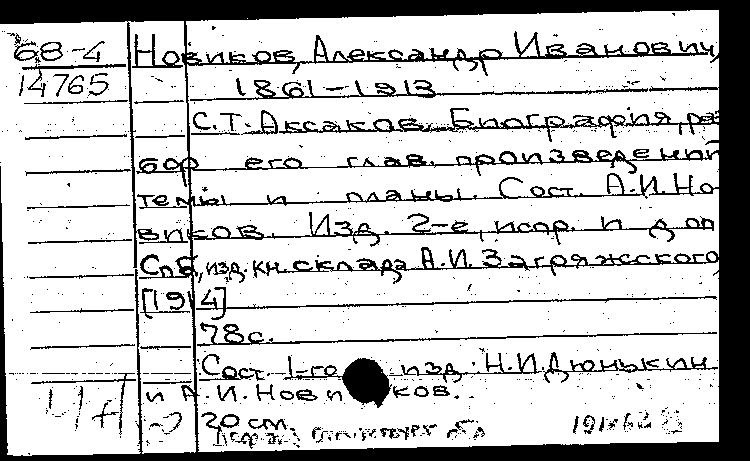 68-4 Новиков, Александр Иванович,
14765 1861-1913
С.Т. Аксаков. Биография, раз
бор его глав. произведений
темы и планы. Сост. А.И. Но-
виков. Изд. 2-е, испр. и доп
Спб, изд. кн. склада А.И. Загряжского
[1914]
78с.
Сост. 1-го изд. Н.И. Дюнькин
и А.И. Новиков.
20 см.